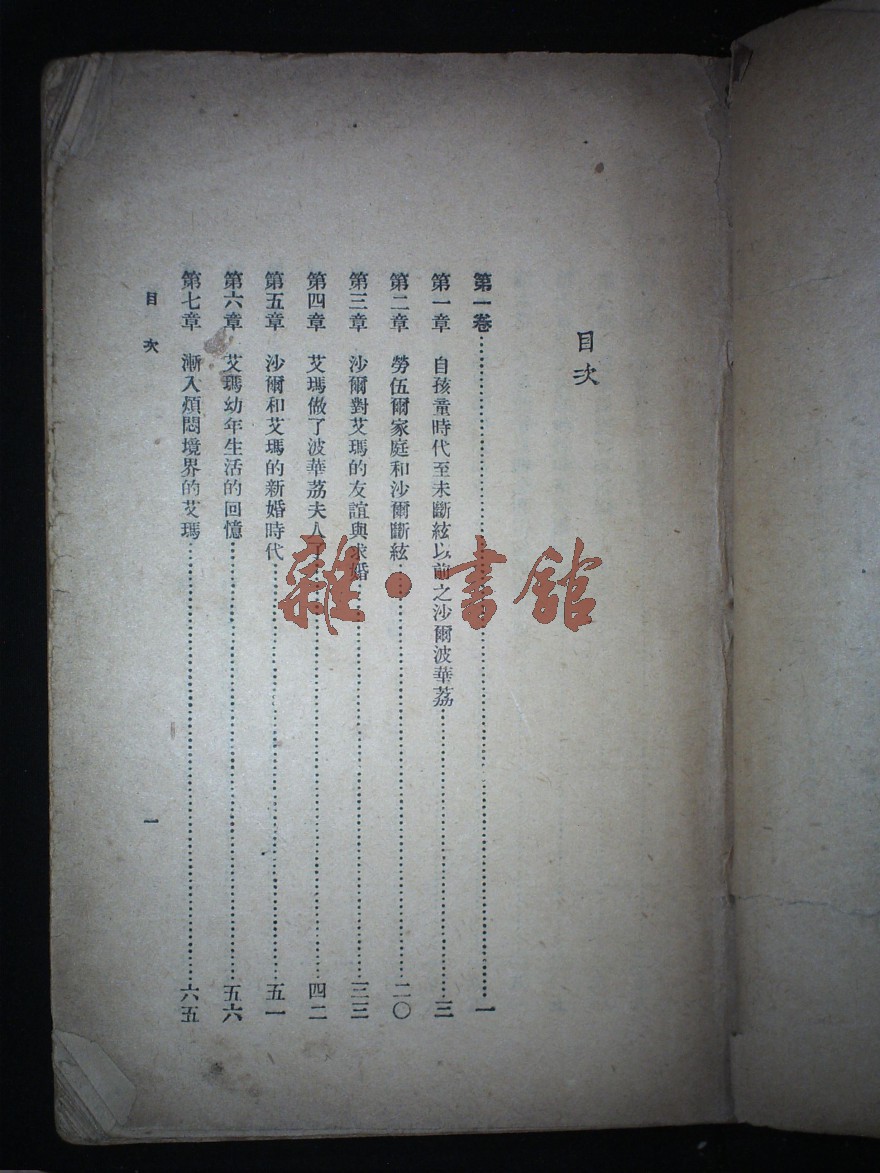 目次
第一卷……一
第一章 自孩童時代至未斷絃以前之沙爾波華荔……三
第二章 勞伍爾家庭和沙爾斷絃……二〇
第三章 沙爾對艾瑪的友誼與求婚……三三
第四章 艾瑪做了波華荔夫人了……四二
第五章 沙爾和艾瑪的新婚時代……五一
第六章 艾瑪幼年生活的回憶……五六
第七章 漸入煩悶境界的艾瑪……六五
目次
一
雜·書館